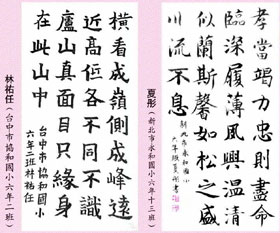 孝當竭力忠則盡命
臨深履薄夙興溫凊
似蘭斯馨如松之盛
川流不息
新北市永和國小
六年級夏彤書
夏彤（新北市永和國小六年十三班）
橫看成嶺側成峰遠
近高低各不同不識
廬山真面目只緣身
在此山中
台中市協和國小
六年二班林祐任
林祐任（台中市協和國小六年二班）